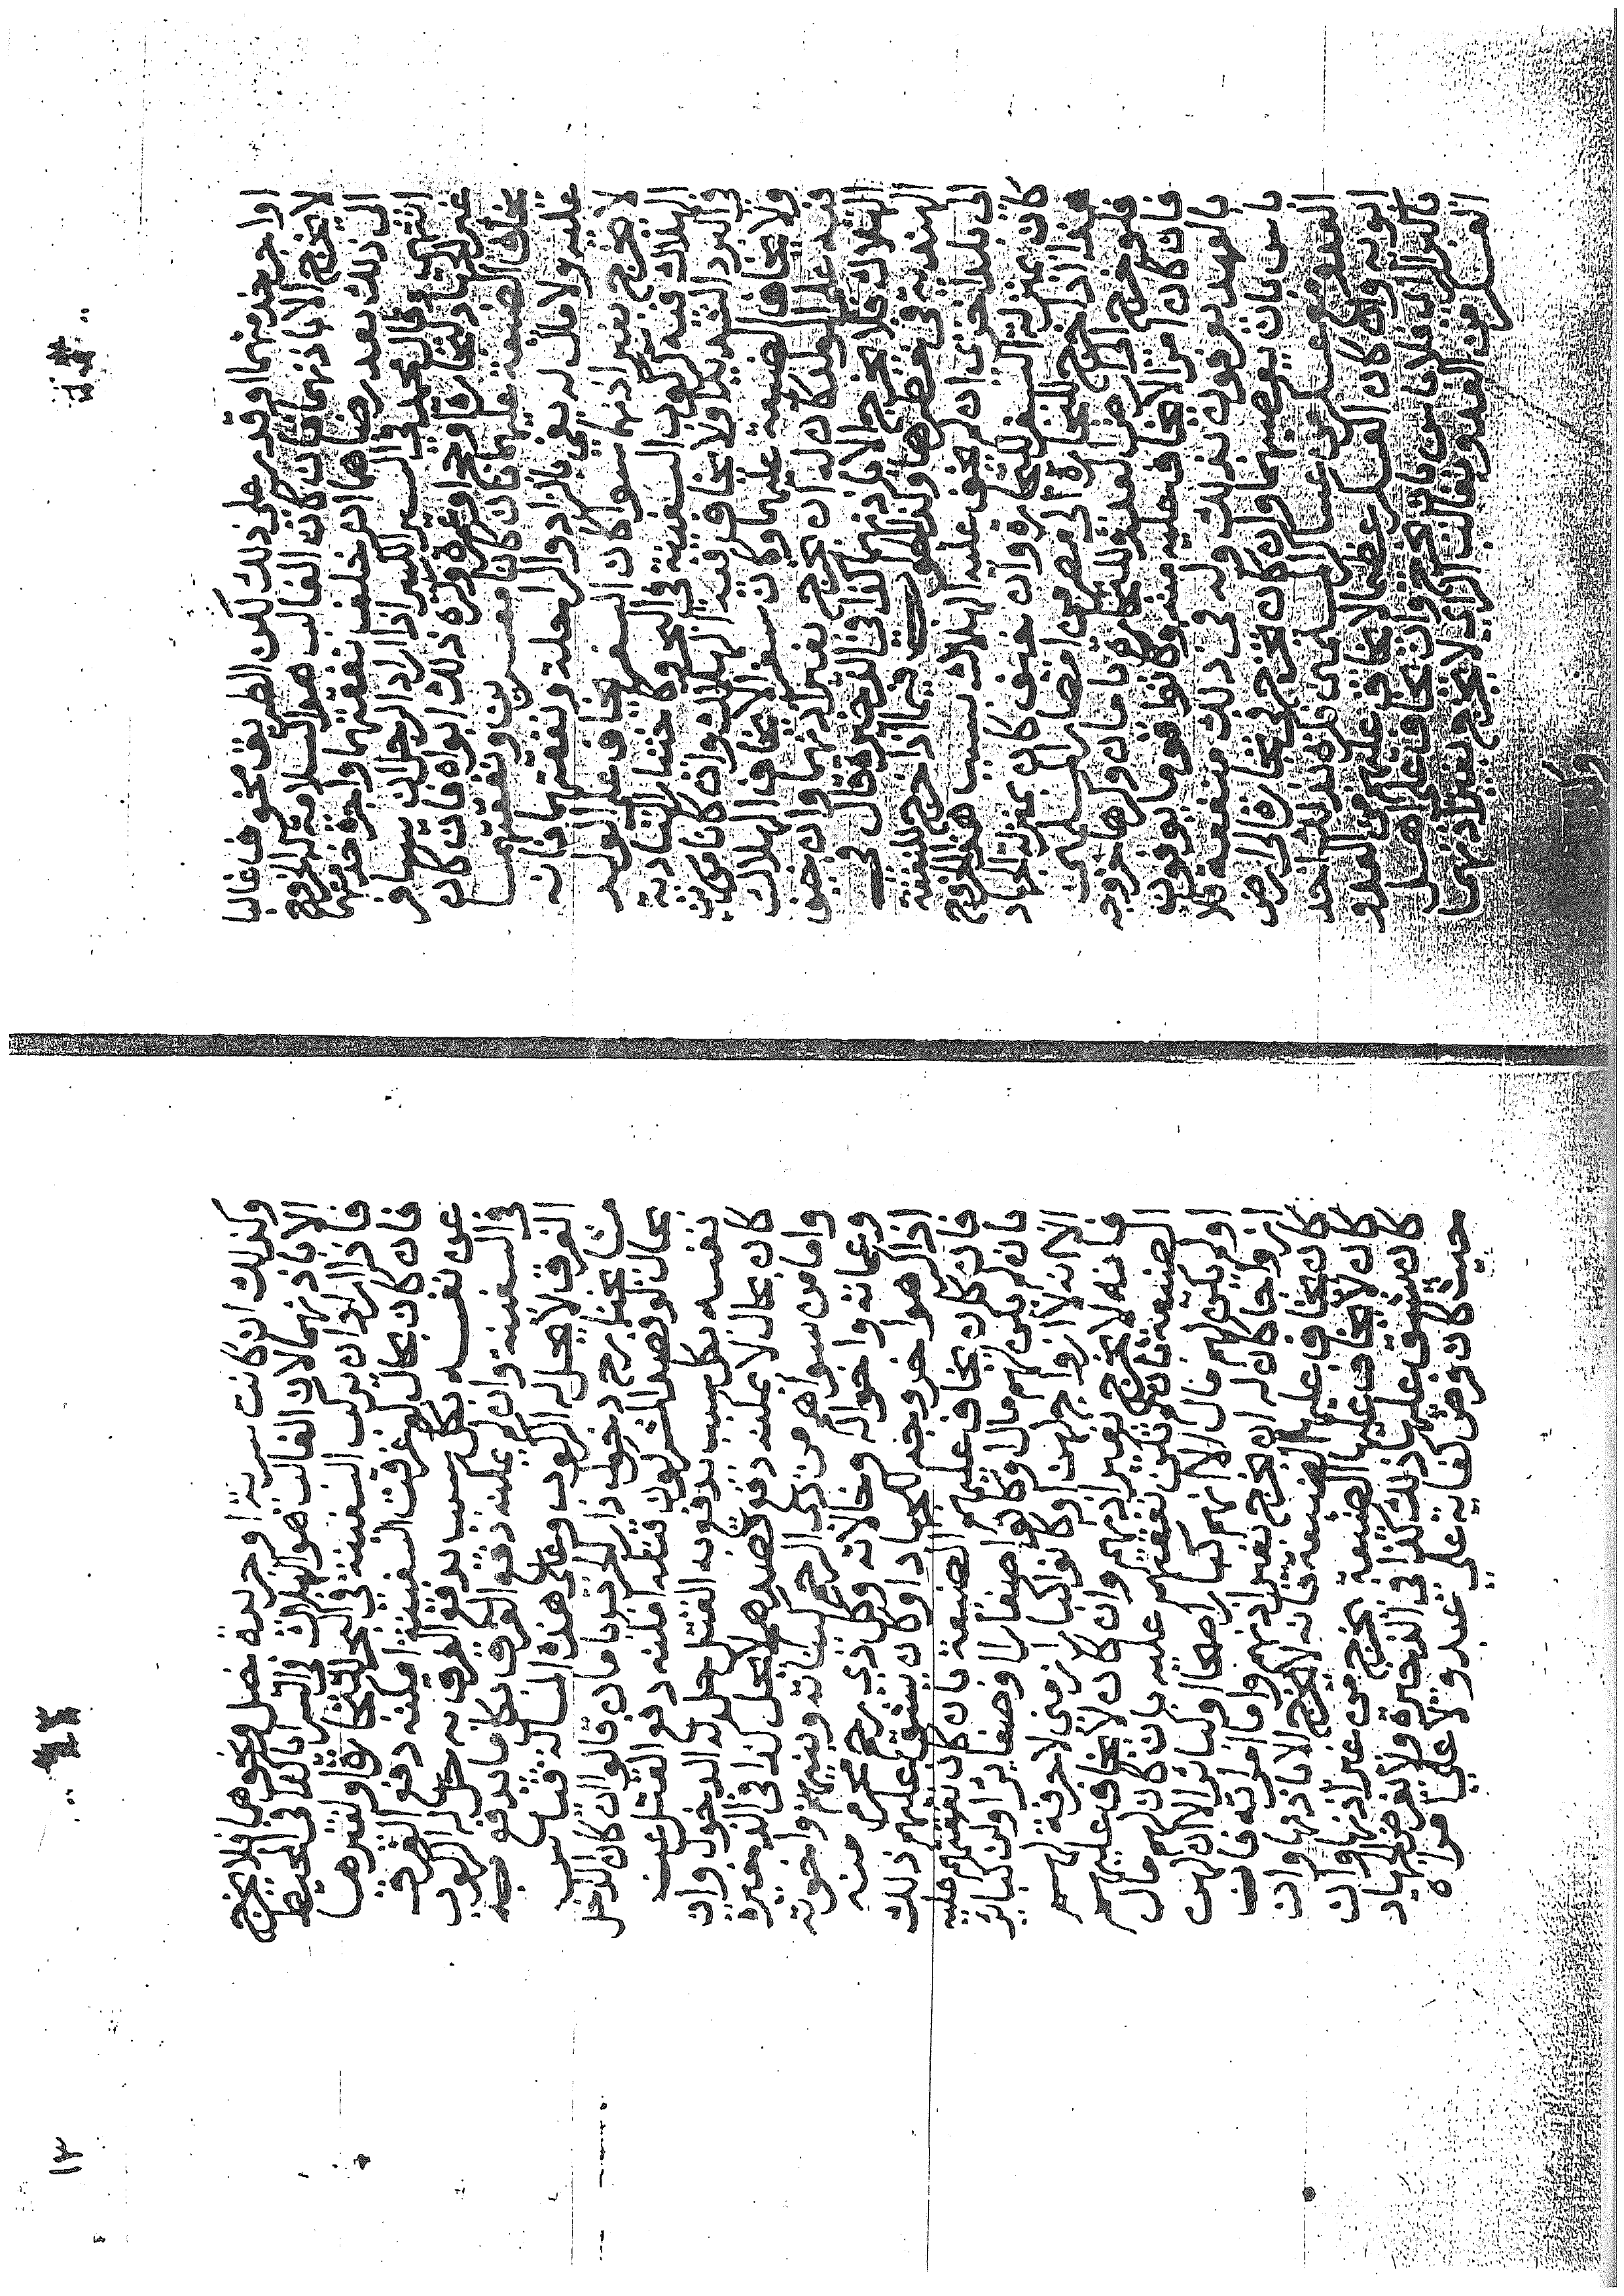 او احد منهما وقدر على ذلك لكن الطريق مخوف فغالبا
لا يخرج الا باذنهما فان كان الغالب هو السلامة له الخروج
الى ذلك بعد رضاهما ان خلف نفقتهما واجرة خدمتهما
انتهى وقال محمد في السير الكبير اذا اراد الرجل ان يسافر
غير الجهاد لتجارة او حج او عمرة وكره ذلك ابواه فان كان
يخاف الضيعة عليهما بان كانا معسرين ونفقتهما
عليه ولا مال له يفي بالزاد والراحلة ونفقتهما فانه
لا يخرج بغير اذنهما سوا كان السفر يخاف على الولد
الهلاك فيه كركوب السفينة في البحر وكاختيار البادية
في البرد الشديد او لا يخاف فيه الهلاك وان كانا
ولا يخاف الضيعة عليهما وكان سفرا لا يخاف الهلاك
فيه على الولد كان له ان يخرج بغير اذنهما وان خيف
الهلاك فلا يخرج الا باذنهما كذا في الذخيرة قال في
الهندية في حظرها فيما اذا خرج للتفقه
في بلد اخرى ان لم يخف عليه الهلاك بسبب هذا الخروج
كان بمنزلة السفر للتجارة وان خيف كان بمنزلة الجهاد
هذا اذا خرج للتجارة الى مصر من امصار المسلمين
فلو خرج الى ارض العدو للتجارة بامان وكرها خروجه
فان كان امرا لا يخاف عليه منه وكانوا قوما يوفون
بالعهد يعرفون بذلك وله في ذلك منفعة فلا
باس بان يعصيهما وان كان يخرج في تجارة الى ارض
العدو مع عسكر من عساكر المسلمين فكره ذلك احد
ابويه وان كان العسكر عظيما لا يخاف عليهم من العدو
باكبر الراي فلا باس بان يخرج وان يخاف على اهل
العسكر من العدو بغالب الراي لا يخرج بغير اذنهما
وكذلك
١٢
وكذلك ان كانت سرية او جريدة خيل ونحوها فلا يخرج
الا باذنهما لان الغالب هو الهلاك في السرايا كذا في المحيط
فاذا اراد ان يركب السفينة في البحر للتجارة او لغيرها
فان كان بحال لو غرقت السفينة امكنه دفع الغرق
عن نفسه بكل سبب يدفع الغرق به حل له الركوب
في السفينة وان لم يمكنه دفع الغرق بكل ما يدفع به
الغرق لا يحل له الركوب وعلى هذه المسالة قياس
من يختار دخول دار الحرب بامان قالوا ان كان الداخل
بحال لو قصد المشركون قتله امكنه دفع القتل عن
نفسه بكل سبب يدفع به القتل حل له الدخول وان
كان بحال لا يمكنه دفع قصدهم لا يحل كذا في الذخيرة
واما من سواهم من ذي الرحم كبناته وبنيه واخوته
وعماته واخواله وخالاته وكل ذي رحم محرم منه
اذا كرهوا خروجه للجهاد وكان يشق عليهم ذلك
فان كان يخاف عليهم الضيعة بان كان نفقتهم عليه
بان لم يكن لهم مال وكانوا صغارا او صغاير او كن كباير
الا انه لا ازواج لهن او كانوا كبارا زمنى لا حرفة لهم
فانه لا يخرج بغير اذنهم وان كان لا يخاف عليهم
الضيعة بان لم يكن نفقتهم عليه بان كان لهم مال
او لم يكن لهم مال الا انهم كبار اصحا او كباير الا ان لهن
ازواجا كان له ان يخرج بغير اذنهم واما امراته فان
كان يخاف عليها الضيعة فانه لا يخرج الا باذنها وان
كان لا يخاف عليها الضيعة يخرج من غير اذنها وان
كان يشق عليها ذلك كذا في الذخيرة ولا يفرض الجهاد
حيث كان فرض كفاية على عبد ولا على امراة